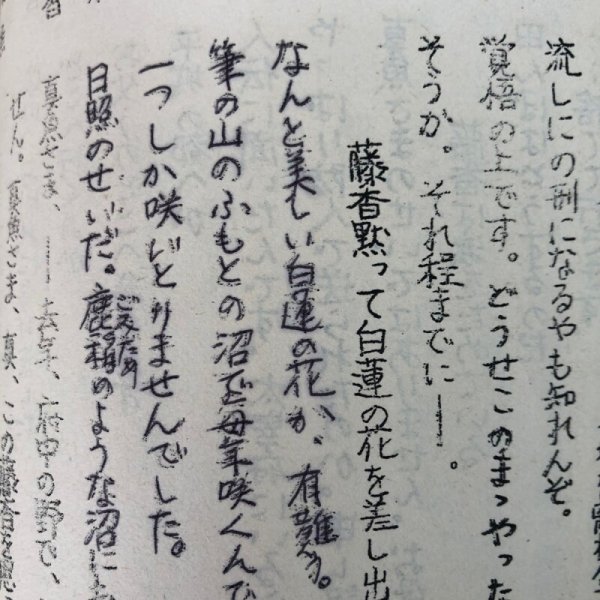 流しにの刑になるやも知れんぞ。
覚悟の上です。どうせこのまゝやった
そうか。それ程までに――。
藤香黙って白蓮の花を差し出
なんと美しい白蓮の花か、有難う。
筆の山のふもとの沼で毎年咲くんで
一つしか咲いとりませんでした。
日照のせいだ。のような沼に
真魚さま、――去年、府中の野で、
せん。真魚さま、真、この藤香を